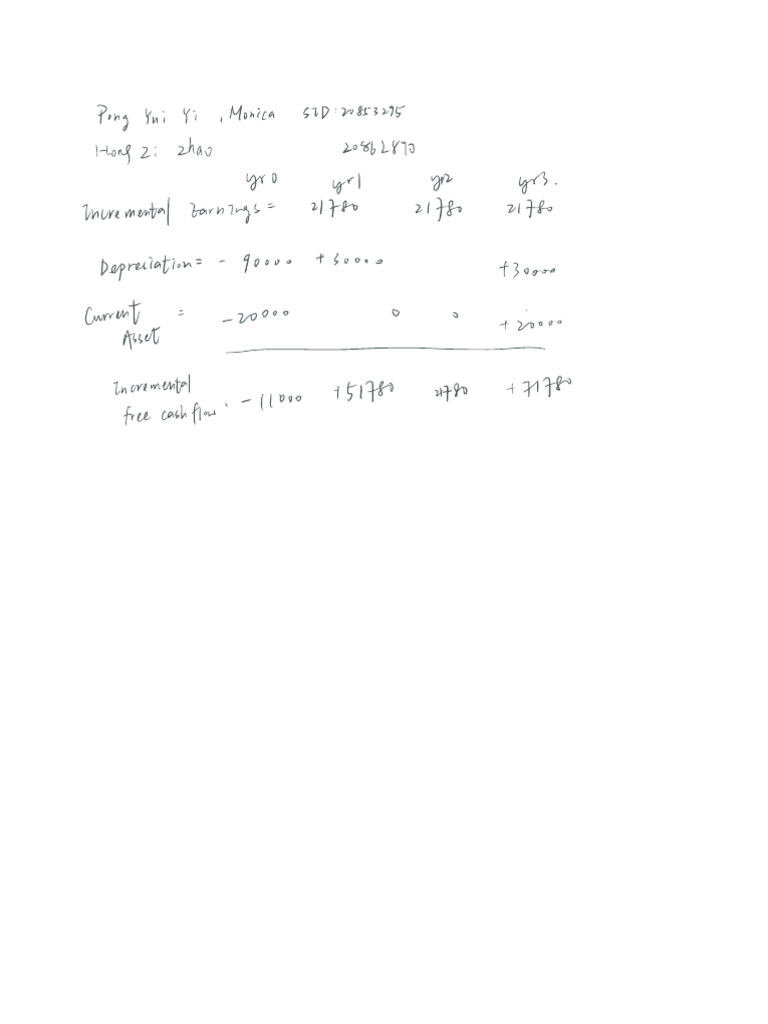 Pong Yui Yi, Monica SID: 20853295
Hong Zi Zhao 20862870
yr0 yr1 yr2 yr3.
Incremental Earnings = 21780 21780 21780
Depreciation = - 90000 + 30000 +30000
Current Asset = -20000 0 0 +20000
Incremental free cashflow. - 11000 +51780 21780 + 71780